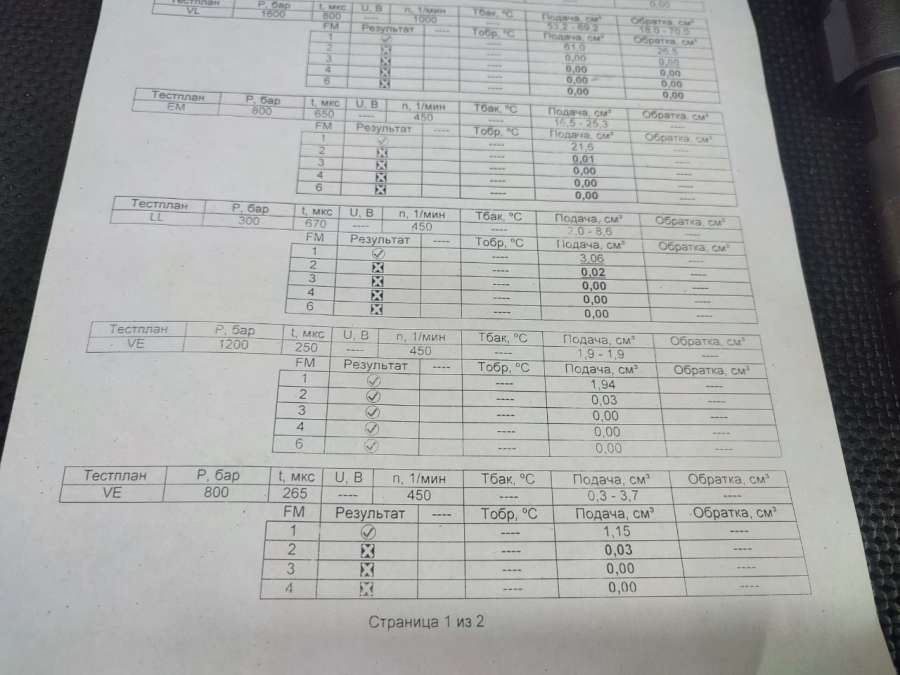 0,00
Тестплан P, бар t, мкс U, В n, 1/мин Тбак, °C Подача, см³ Обратка, см³
VL 1600 800 ---- 1000 ---- 53,2 - 69,2 18,0 - 70,0
FM Результат ---- Тобр, °C Подача, см³ Обратка, см³
1 ---- 61,0 26,5
2 ---- 0,00 0,00
3 ---- 0,00 0,00
4 ---- 0,00 0,00
6 ---- 0,00 0,00
Тестплан P, бар t, мкс U, В n, 1/мин Тбак, °C Подача, см³ Обратка, см³
EM 800 650 ---- 450 ---- 16,5 - 26,3 ----
FM Результат ---- Тобр, °C Подача, см³ Обратка, см³
1 ---- 21,6 ----
2 ---- 0,01 ----
3 ---- 0,00 ----
4 ---- 0,00 ----
6 ---- 0,00 ----
Тестплан P, бар t, мкс U, В n, 1/мин Тбак, °C Подача, см³ Обратка, см³
LL 300 670 ---- 450 ---- 2,0 - 8,6 ----
FM Результат ---- Тобр, °C Подача, см³ Обратка, см³
1 ---- 3,06 ----
2 ---- 0,02 ----
3 ---- 0,00 ----
4 ---- 0,00 ----
6 ---- 0,00 ----
Тестплан P, бар t, мкс U, В n, 1/мин Тбак, °C Подача, см³ Обратка, см³
VE 1200 250 ---- 450 ---- 1,9 - 1,9 ----
FM Результат ---- Тобр, °C Подача, см³ Обратка, см³
1 ---- 1,94 ----
2 ---- 0,03 ----
3 ---- 0,00 ----
4 ---- 0,00 ----
6 ---- 0,00 ----
Тестплан P, бар t, мкс U, В n, 1/мин Тбак, °C Подача, см³ Обратка, см³
VE 800 265 ---- 450 ---- 0,3 - 3,7 ----
FM Результат ---- Тобр, °C Подача, см³ Обратка, см³
1 ---- 1,15 ----
2 ---- 0,03 ----
3 ---- 0,00 ----
4 ---- 0,00 ----
Страница 1 из 2